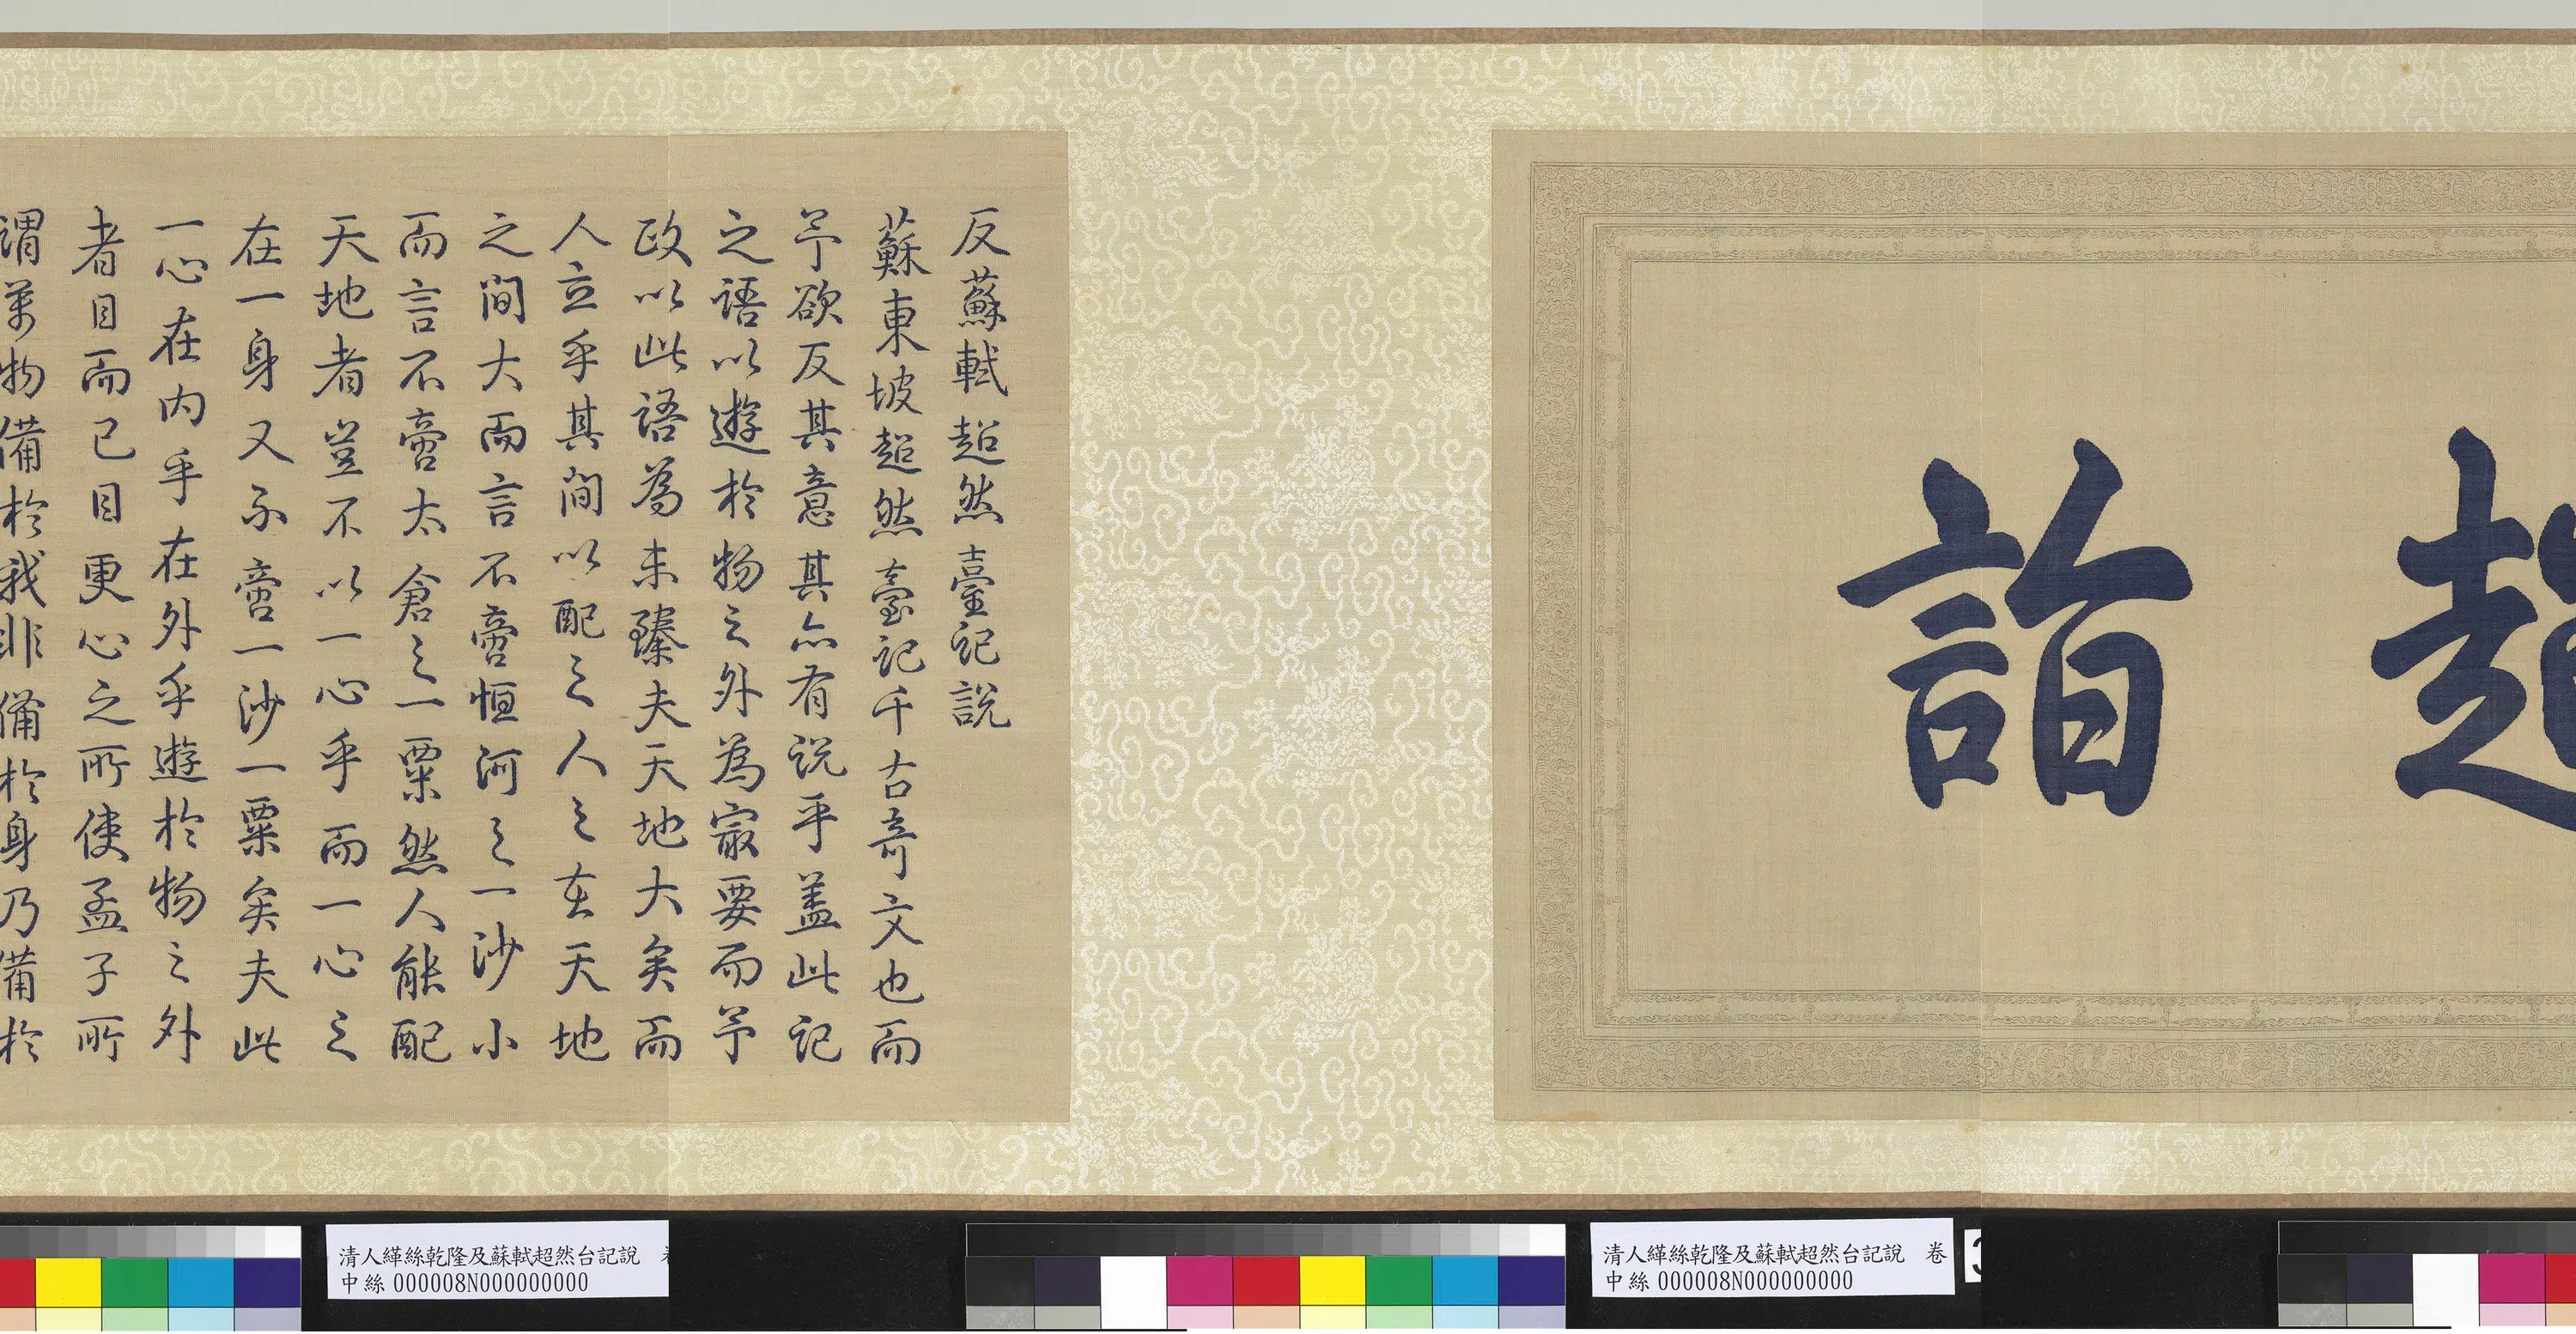 超
詣
反蘇軾超然臺記說
蘇東坡超然臺記千古奇文也而
予欲反其意其亦有說乎蓋此記
之語以遊於物之外為㝡要而予
政以此語為未臻夫天地大矣而
人立乎其間以配之人之在天地
之間大而言不啻恒河之一沙小
而言不啻太倉之一粟然人能配
天地者豈不以一心乎而一心之
在一身又不啻一沙一粟矣夫此
一心在內乎在外乎遊於物之外
者目而已目更心之所使孟子所
謂萬物備於我非備於身乃備於
清人緙絲乾隆及蘇軾超然台記說
中絲 000008N000000000
清人緙絲乾隆及蘇軾超然台記說 卷
中絲 000008N000000000